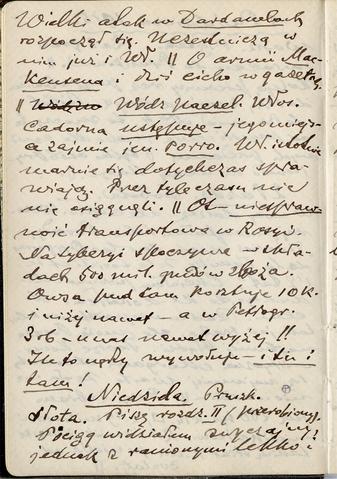 Wielki atak w Dardanelach
rozpoczął się. Uczestniczą w
nim już i Wł. || O armii Mac-
kensena i dziś cicho w gazetach.
|| Wódz naczel. Włos.
Cadorna ustępuje – jego miejs-
a zajmie jen. Porro. Wł. istotnie
marnie się dotychczas spra-
wiają. Przez tyle czasu nic
nie osiągnęli. || Ot – niespraw-
ność transportowa w Rosyi.
Na Syberyi spoczywa w skła-
dach 500 mil. pudów zboża.
Owsa pud tam kosztuje 10 K.
i niżej nawet – a w Petrogr.
3 rb – u nas nawet wyżej!!
I to nędzę wywołuje – i tu i
tam!
Niedziela. Prusk.
słota. Piszę rozdz. II (przerobiony).
Pociąg widziałem
jednak z rannymi lekko i